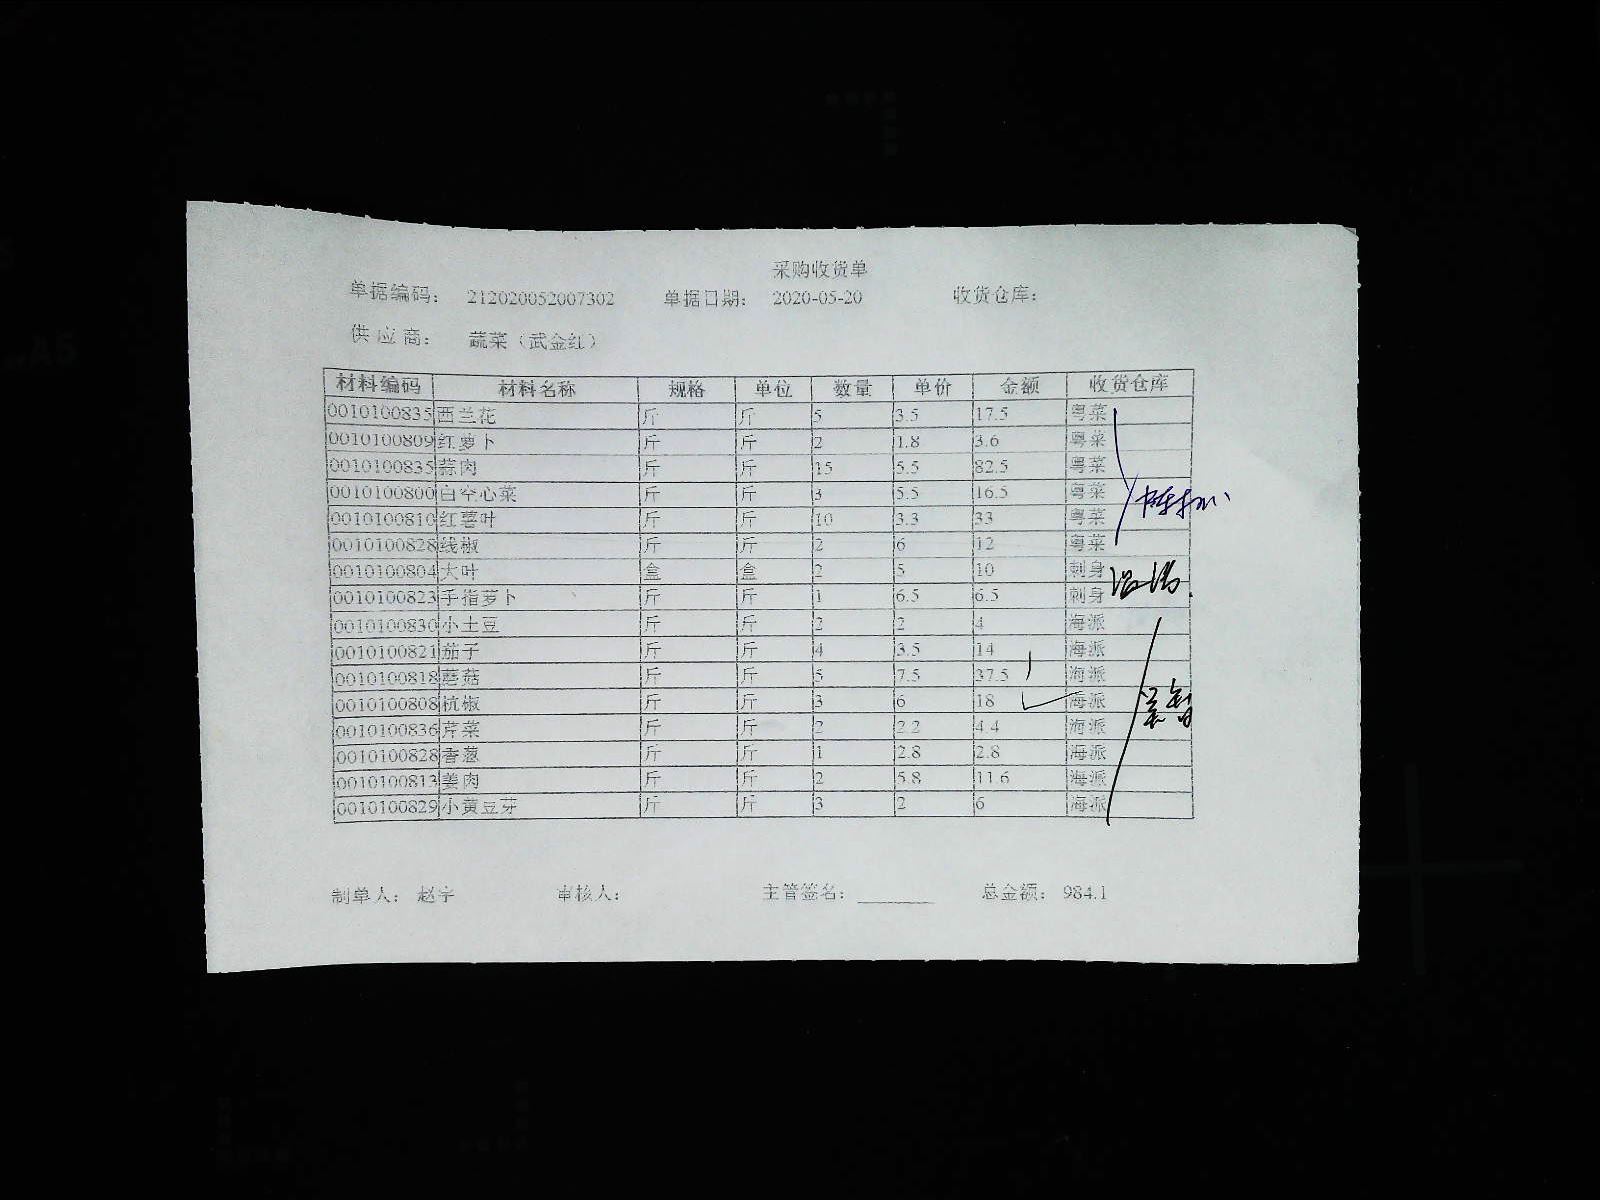 采购收货单
单据编码： 212020052007302 单据日期： 2020-05-20 收货仓库：
供应商： 蔬菜（武金红）
材料编码 材料名称 规格 单位 数量 单价 金额 收货仓库
0010100835 西兰花 斤 斤 5 3.5 17.5 粤菜
0010100809 红萝卜 斤 斤 2 1.8 3.6 粤菜
0010100835 蒜肉 斤 斤 15 5.5 82.5 粤菜
0010100800 白空心菜 斤 斤 3 5.5 16.5 粤菜
0010100810 红薯叶 斤 斤 10 3.3 33 粤菜
0010100828 线椒 斤 斤 2 6 12 粤菜
0010100804 大叶 盒 盒 2 5 10 刺身
0010100823 手指萝卜 斤 斤 1 6.5 6.5 刺身
0010100830 小土豆 斤 斤 2 2 4 海派
0010100821 茄子 斤 斤 4 3.5 14 海派
0010100818 蘑菇 斤 斤 5 7.5 37.5 海派
0010100808 杭椒 斤 斤 3 6 18 海派
0010100836 芹菜 斤 斤 2 2.2 4.4 海派
0010100828 香葱 斤 斤 1 2.8 2.8 海派
0010100813 姜肉 斤 斤 2 5.8 11.6 海派
0010100829 小黄豆芽 斤 斤 3 2 6 海派
制单人： 赵宇 审核人： 主管签名： 总金额： 984.1